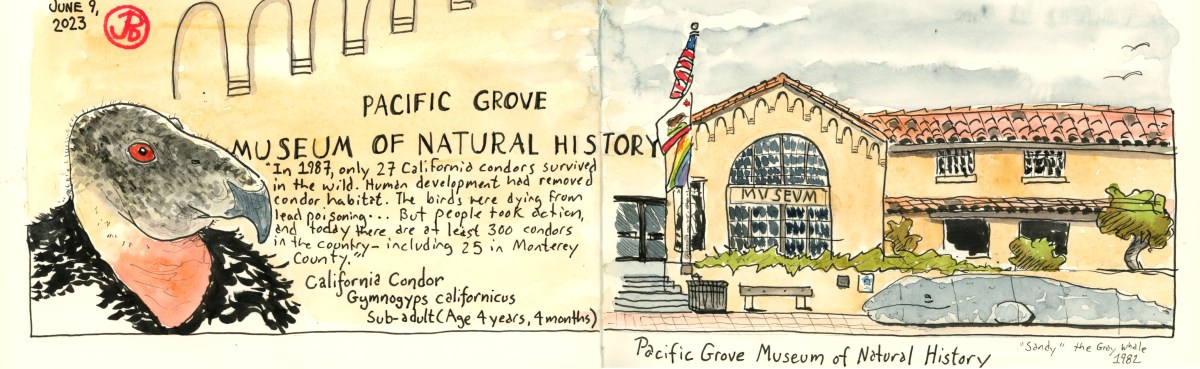 JUNE 9,
2023
JPD
PACIFIC GROVE
MUSEUM OF NATURAL HISTORY
"In 1987, only 27 California condors survived
in the wild. Human development had removed
condor habitat. The birds were dying from
lead poisoning... But people took action,
and today there are at least 300 condors
in the country – including 25 in Monterey
County."
California Condor
Gymnogyps californicus
Sub-adult (Age 4 years, 4 months)
MVSEVM
Pacific Grove Museum of Natural History
"Sandy" the Gray Whale
1982